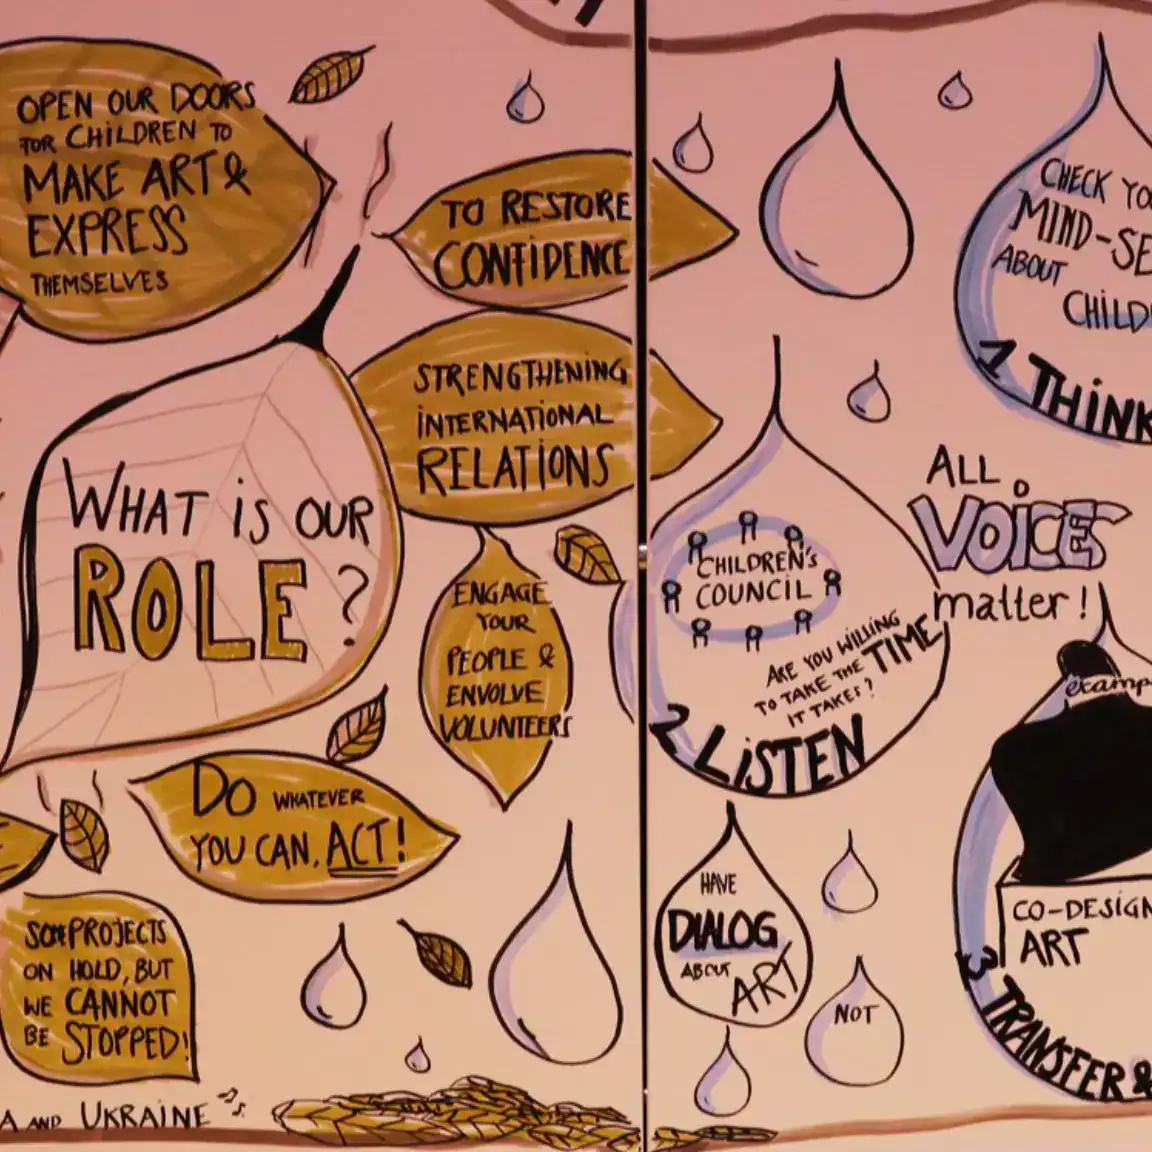 OPEN OUR DOORS
FOR CHILDREN TO
MAKE ART &
EXPRESS
THEMSELVES
TO RESTORE
CONFIDENCE
STRENGTHENING
INTERNATIONAL
RELATIONS
WHAT iS OUR
ROLE?
ENGAGE
YOUR
PEOPLE &
ENVOLVE
VOLUNTEERS
DO WHATEVER
YOU CAN, ACT!
PROJECTS
ON HOLD, BUT
WE CANNOT
BE STOPPED!
AND UKRAINE
CHECK
MIND-SE
ABOUT
CHILD
1 THiNK
ALL
VOiCES
matter!
CHILDREN'S
COUNCIL
ARE YOU WILLING
TO TAKE THE TIME
IT TAKES?
2 LiSTEN
HAVE
DIALOG
ABOUT
ART
NOT
examp
CO-DESIGN
ART
3 TRANSFER &